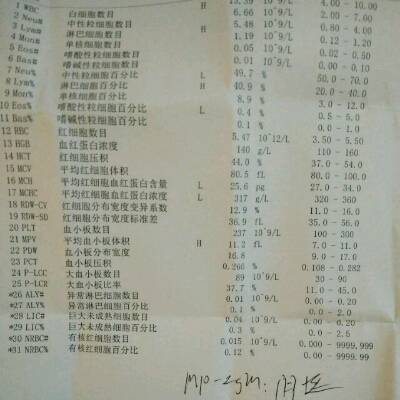 1 WBC 白细胞数目 H 13.39 10^9/L 4.00 - 10.00
2 Neu# 中性粒细胞数目 6.66 10^9/L 2.00 - 7.00
3 Lym# 淋巴细胞数目 H 5.48 10^9/L 0.80 - 4.00
4 Mon# 单核细胞数目 1.19 10^9/L 0.12 - 1.20
5 Eos# 嗜酸性粒细胞数目 0.05 10^9/L 0.02 - 0.50
6 Bas# 嗜碱性粒细胞数目 0.01 10^9/L 0.00 - 0.10
7 Neu% 中性粒细胞百分比 L 49.7 % 50.0 - 70.0
8 Lym% 淋巴细胞百分比 H 40.9 % 20.0 - 40.0
9 Mon% 单核细胞百分比 8.9 % 3.0 - 12.0
10 Eos% 嗜酸性粒细胞百分比 L 0.4 % 0.5 - 5.0
11 Bas% 嗜碱性粒细胞百分比 0.1 % 0.0 - 1.0
12 RBC 红细胞数目 5.47 10^12/L 3.50 - 5.50
13 HGB 血红蛋白浓度 140 g/L 110 - 160
14 HCT 红细胞压积 44.0 % 37.0 - 54.0
15 MCV 平均红细胞体积 80.5 fL 80.0 - 100.0
16 MCH 平均红细胞血红蛋白含量 L 25.6 pg 27.0 - 34.0
17 MCHC 平均红细胞血红蛋白浓度 L 317 g/L 320 - 360
18 RDW-CV 红细胞分布宽度变异系数 12.9 % 11.0 - 16.0
19 RDW-SD 红细胞分布宽度标准差 36.9 fL 35.0 - 56.0
20 PLT 血小板数目 237 10^9/L 100 - 300
21 MPV 平均血小板体积 H 11.2 fL 7.0 - 11.0
22 PDW 血小板分布宽度 16.8 9.0 - 17.0
23 PCT 血小板压积 0.266 % 0.108 - 0.282
24 P-LCC 大血小板数目 89 10^9/L 30 - 90
25 P-LCR 大血小板比率 37.7 % 11.0 - 45.0
*26 ALY# 异常淋巴细胞数目 0.01 10^9/L 0.00 - 0.20
*27 ALY% 异常淋巴细胞百分比 0.1 % 0.0 - 2.0
*28 LIC# 巨大未成熟细胞数目 0.04 10^9/L 0.00 - 0.20
*29 LIC% 巨大未成熟细胞百分比 0.3 % 0.0 - 2.5
*30 NRBC# 有核红细胞数目 0.015 10^9/L 0.000 - 9999.999
*31 NRBC% 有核红细胞百分比 0.12 % 0.00 - 9999.99
Mp-IgM: